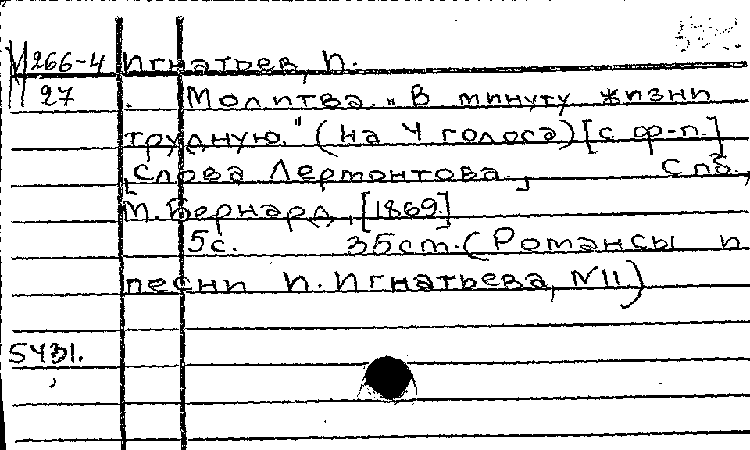 М 266-4 Игнатьев, И.
27 Молитва „В минуту жизни
трудную." (на 4 голоса) [с ф-п.]
[Слова Лермонтова.] Спб.,
М. Бернард, [1869.]
5с. 35см. (Романсы и
песни И. Игнатьева, №11)
5431.